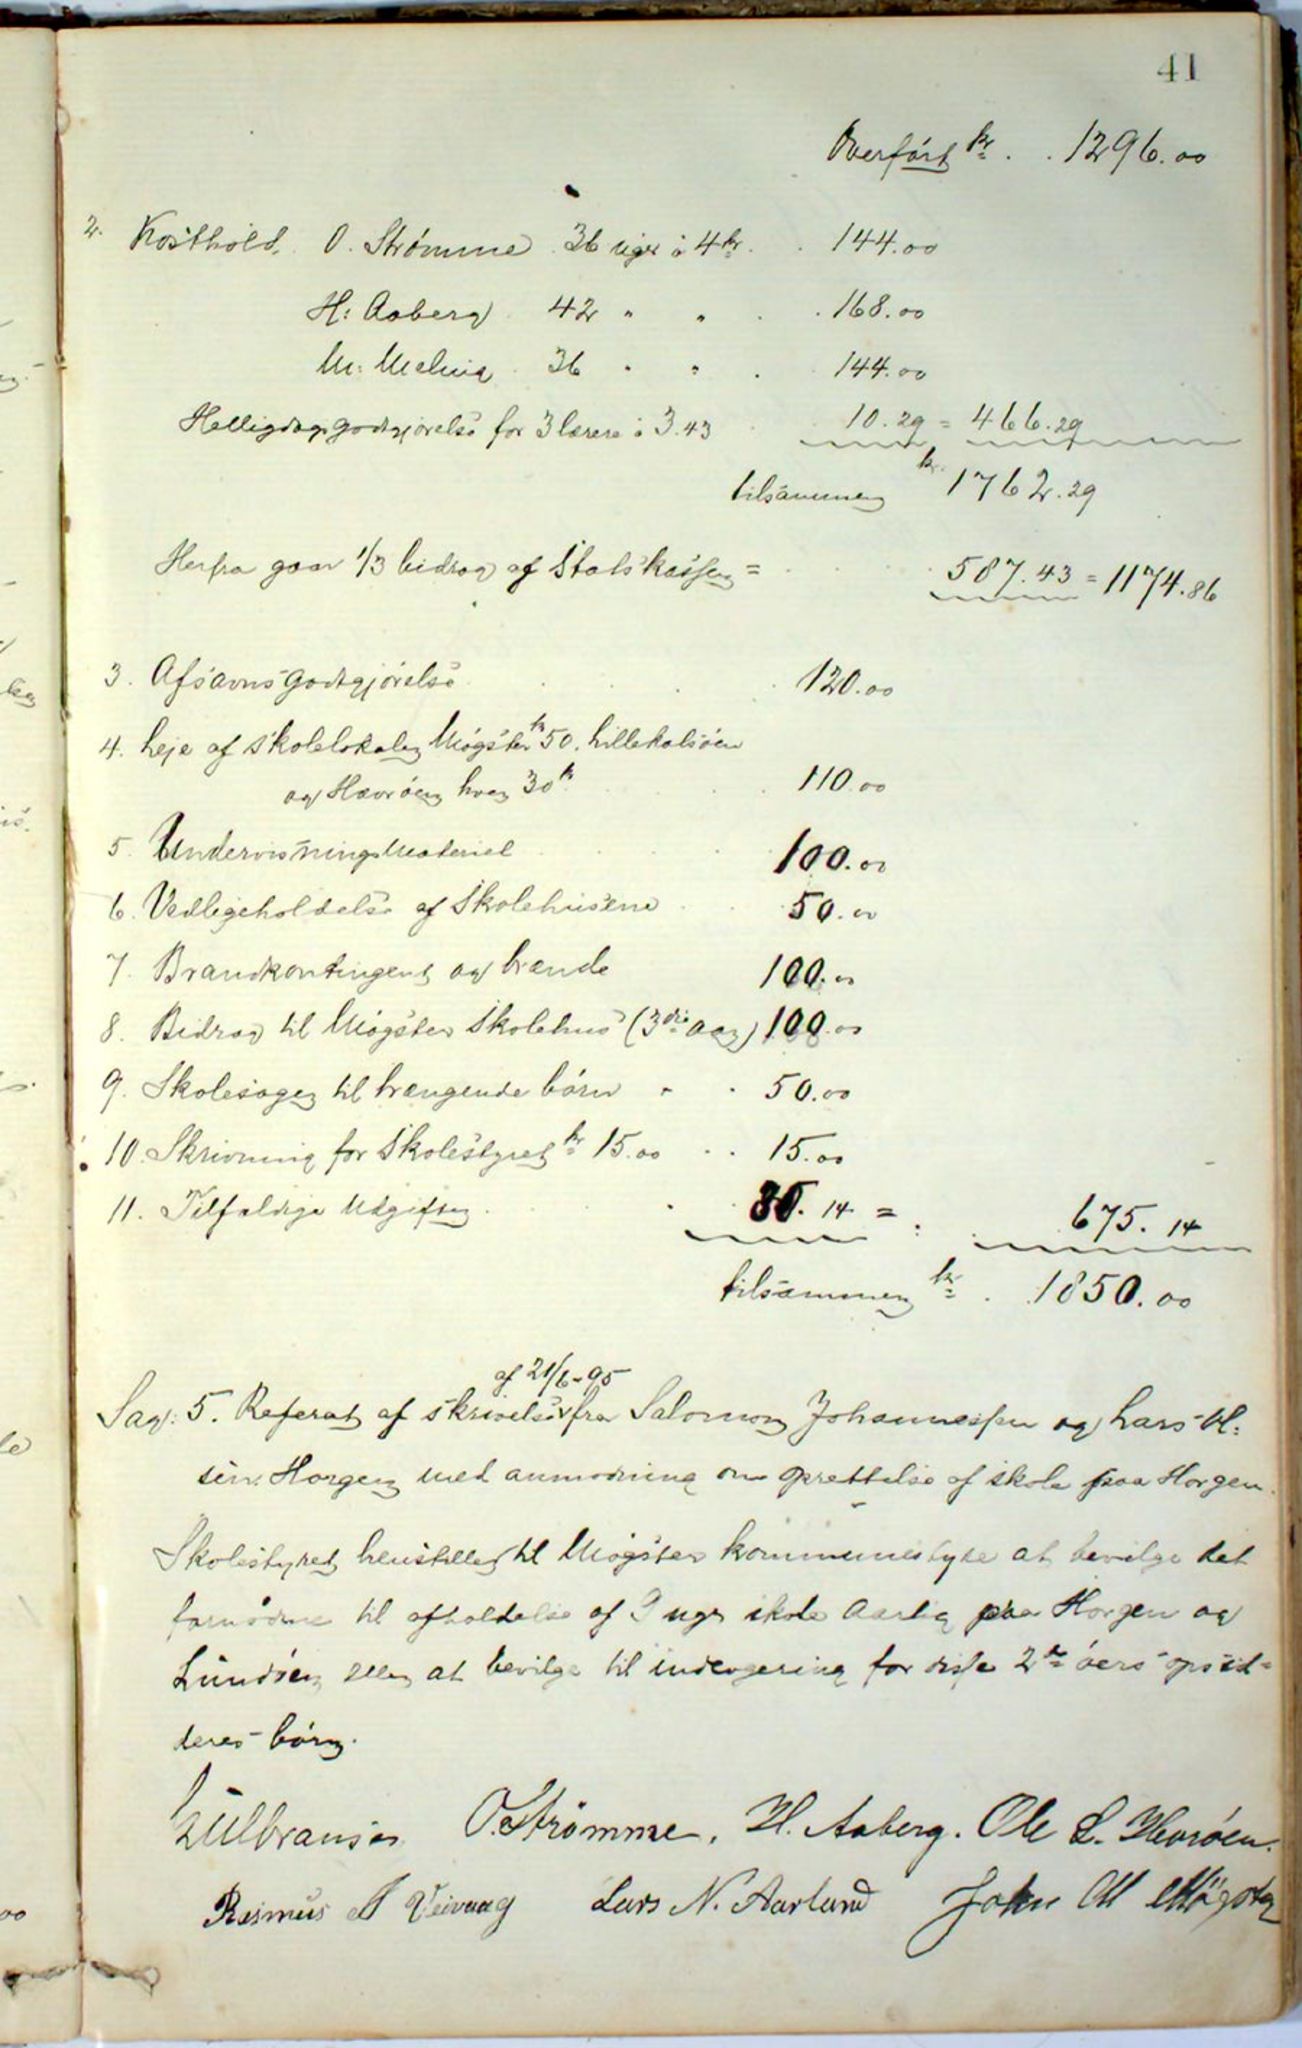 41
Overført kr. . . 1296.00
2. Kosthold. O. Strømme . 36 uger à 4 kr. . . 144.00
H: Aaberg . 42 " " . . 168.00
M: Meling . 36 " " . 144.00
Helligdagsgodtgjørelse for 3 lærere à 3.43 10.29 = 466.29
tilsammen kr. 1762.29
Herfra gaar 1/3 bidrag af Statskassen = . . . . 587.43 = 1174.86
3. Afsavnsgodtgjørelse . . . . 120.00
4. Leje af skolelokale Møgster kr 50. Lillekalsøen
og Havrøen hver 30 kr. . . 110.00
5. Undervisningsmateriel . . . . 100.00
6. Vedligeholdelse af Skolehusene . . 50.00
7. Brandkontingent og brænde 100.00
8. Bidrag til Møgster Skolehus (3die Aar) 100.00
9. Skolesager til trængende børn - . 50.00
10. Skrivning for Skolestyret kr. 15.00 . . 15.00
11. Tilfældige Udgifter . . . . 30.14 = . 675.14
tilsammen kr. . 1850.00
af 21/6-95
Sag: 5. Referat af skrivelse fra Salomon Johannessen og Lars Ol-
sen. Horgen med anmodning om oprettelse af skole paa Horgen.
Skolestyret henstiller til Møgster kommunestyre at bevilge det
fornødne til afholdelse af 9 ugers skole aarlig paa Horgen og
Lundøen eller at bevilge til indlogering for disse 2de øers opsid-
deres børn.
Gulbransen O. Strømme. H. Aaberg. Ole L. Hevrøen.
Rasmus J Veivaag Lars N. Aarland John M Møgster